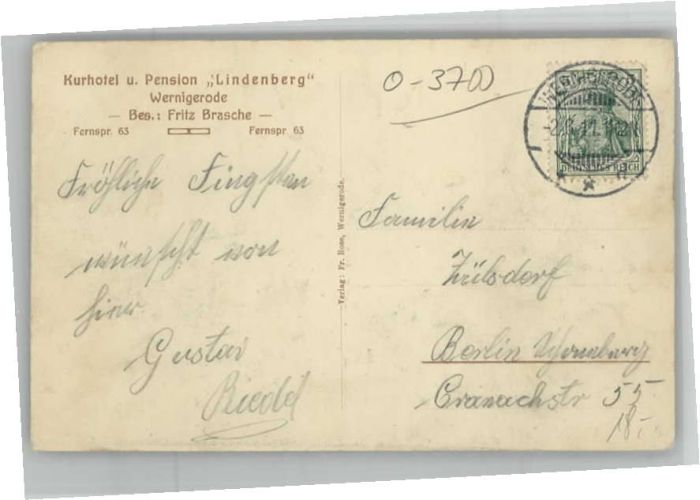 Kurhotel u. Pension „Lindenberg"
Wernigerode
— Bes.: Fritz Brasche —
Fernspr. 63 Fernspr. 63
Fröhliche Fingsten
wünscht von
hier
Gustav
Riedel
Verlag: Fr. Rose, Wernigerode.
0-3700
DEUTSCHES REICH
Familie
Zülsdorf
Berlin Schöneberg
Cranachstr 55
18.-